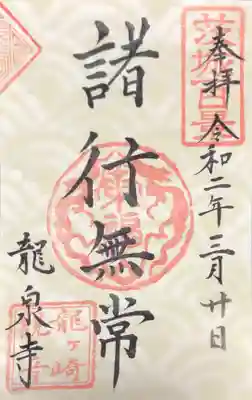 奉拝 令和二年三月廿日
諸行無常
龍泉寺
龍ヶ崎